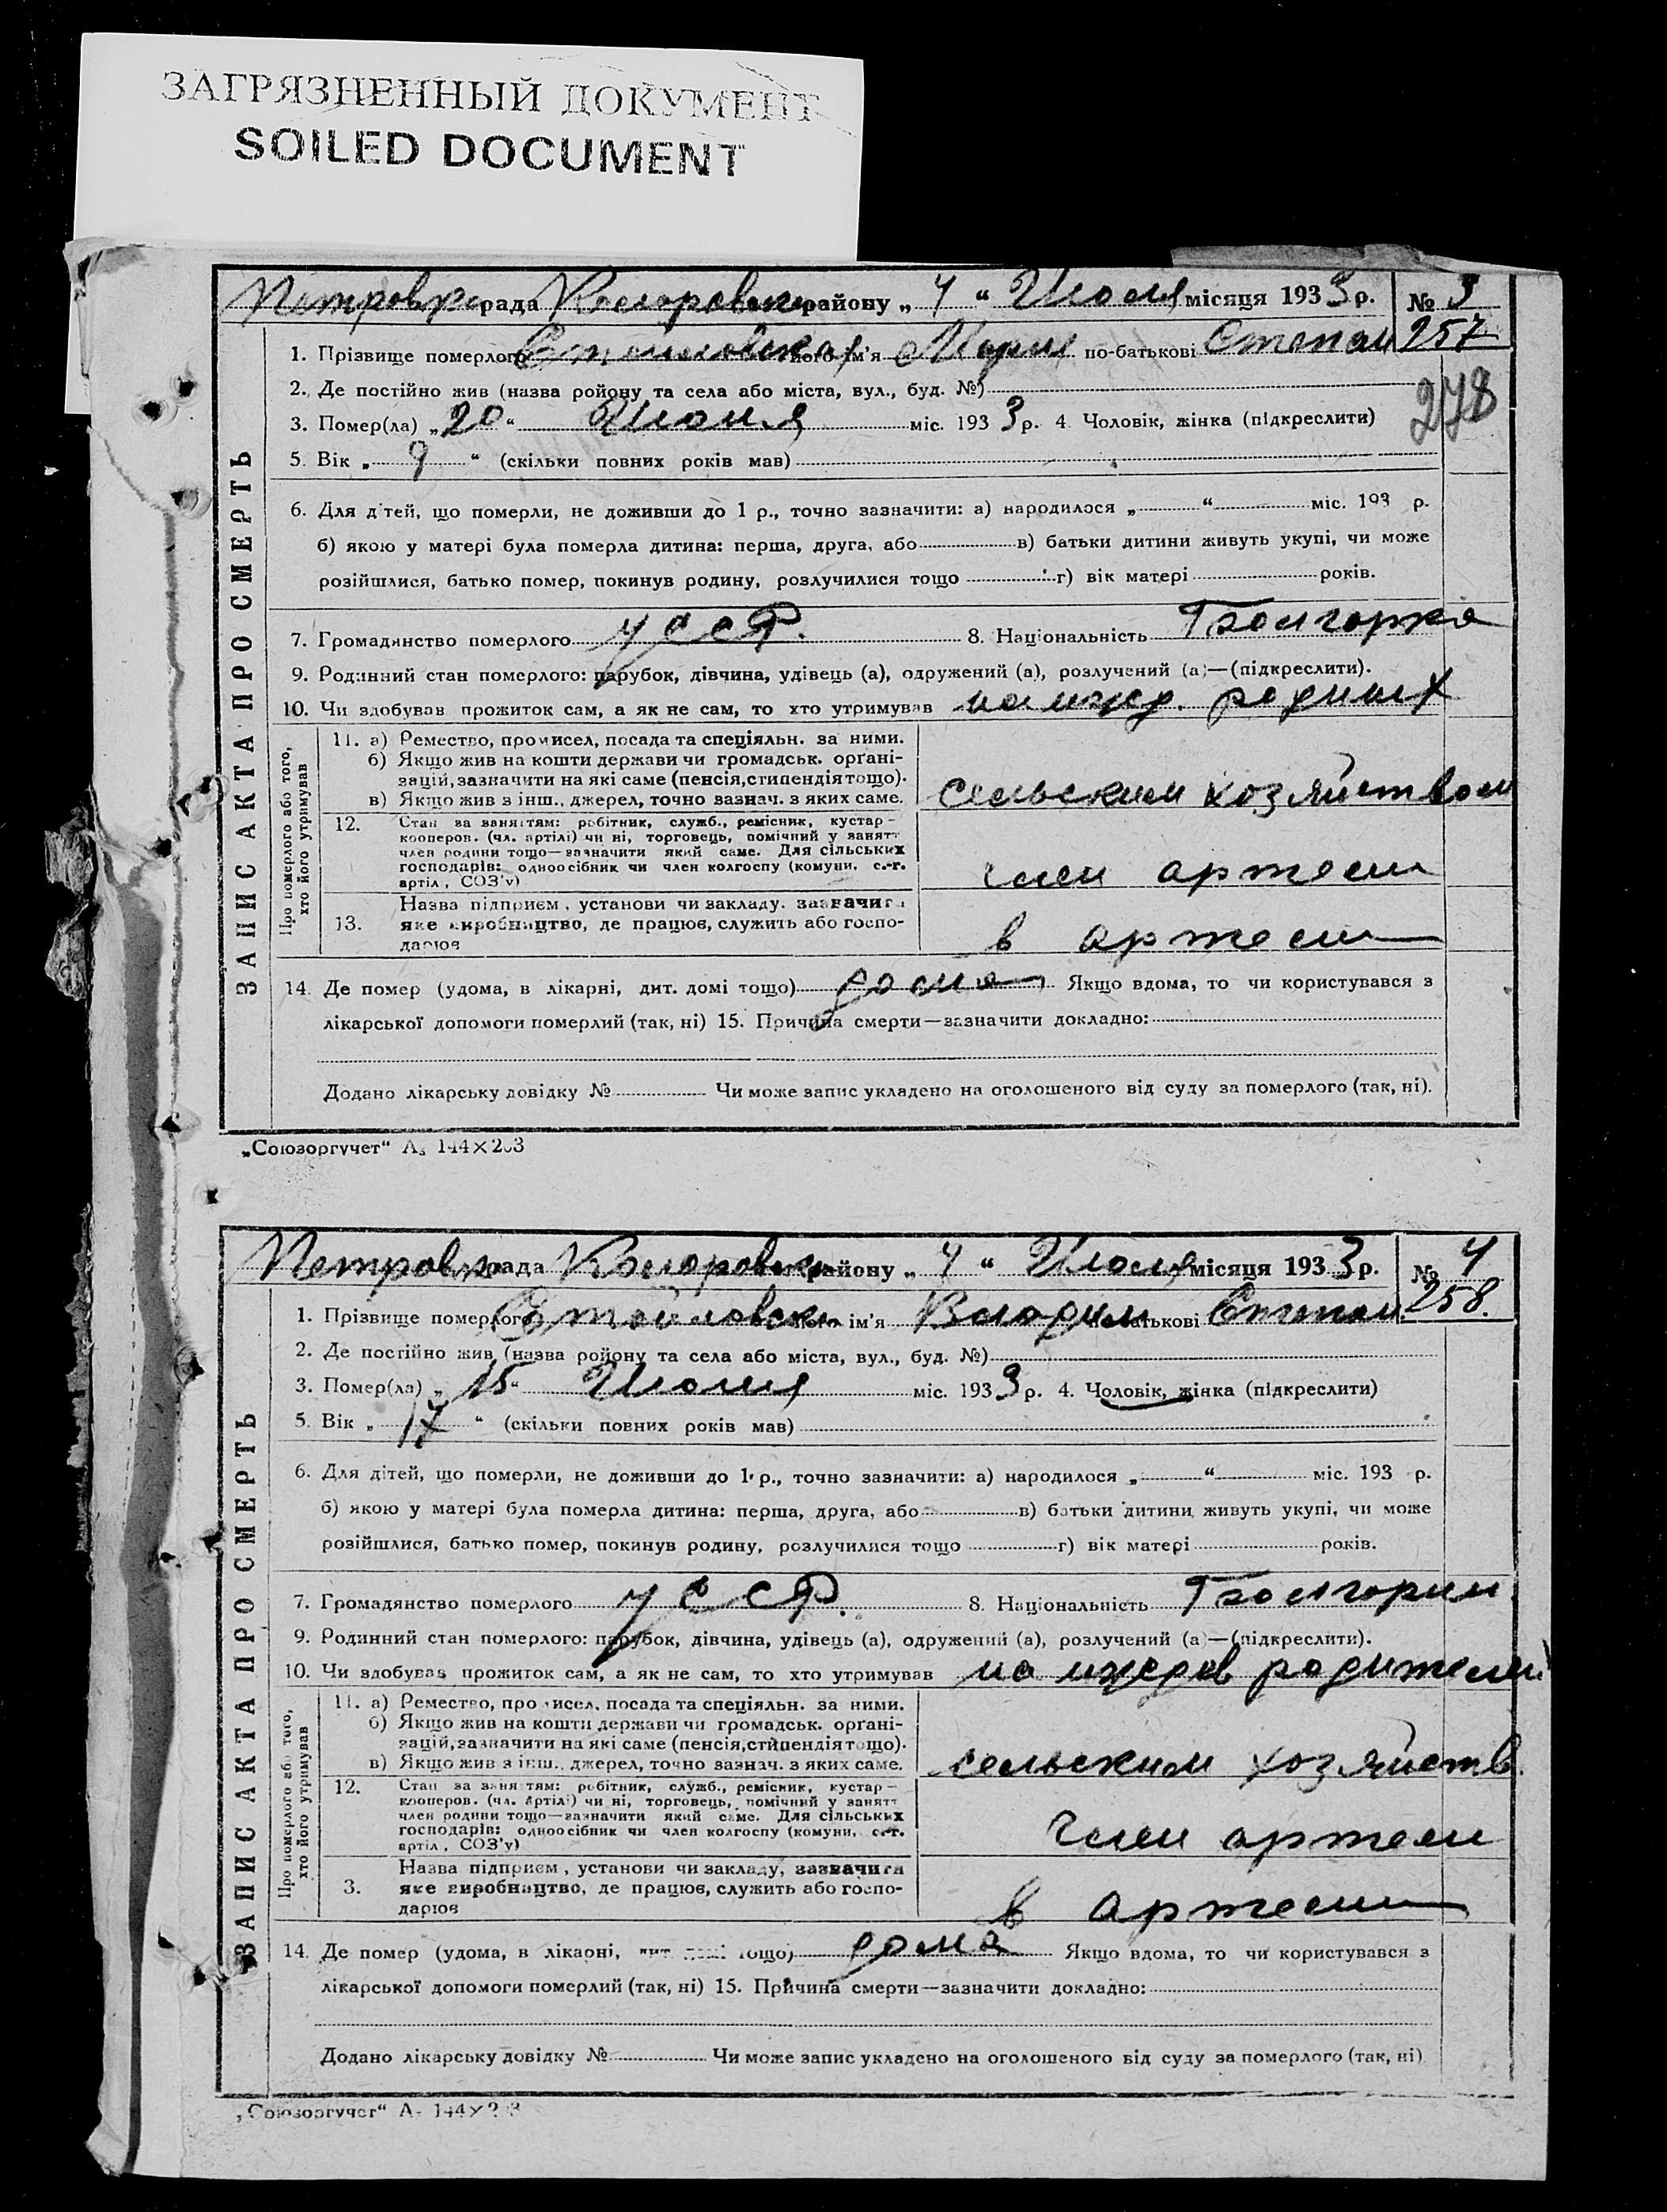 ЗАГРЯЗНЕННЫЙ ДОКУМЕНТ
SOILED DOCUMENT
рада району „ 4 “ Июля місяця 1933 р. № 3
257
1. Прізвище померлого ім'я Мария по-батькові Степан
278
2. Де постійно жив (назва ройону та села або міста, вул., буд. №)
3. Помер(ла) „ 20 “ міс. 1933 р. 4. Чоловік, жінка (підкреслити)
5. Вік „ 9 “ (скільки повних років мав)
6. Для дітей, що померли, не доживши до 1 р., точно зазначити: а) народилося „ “ міс. 193 р.
б) якою у матері була померла дитина: перша, друга, або в) батьки дитини живуть укупі, чи може
розійшлися, батько помер, покинув родину, розлучилися тощо г) вік матері років.
7. Громадянство померлого УССР. 8. Національність Болгарка
9. Родинний стан померлого: парубок, дівчина, удівець (а), одружений (а), розлучений (а)—(підкреслити).
10. Чи здобував прожиток сам, а як не сам, то хто утримував на ижд. родных
ЗАПИС АКТА ПРО СМЕРТЬ
Про померлого або того, хто його утримував
11. а) Ремество, промисел, посада та спеціяльн. за ними.
б) Якщо жив на кошти держави чи громадськ. орґані-
зацій, зазначити на які саме (пенсія, стипендія тощо).
в) Якщо жив з інш., джерел, точно зазнач. з яких саме. сельским хозяйством
12. Стан за заняттям: робітник, служб., ремісник, кустар—
кооперов. (чл. артілі) чи ні, торговець, помічний у занятт
член родини тощо—зазначити який саме. Для сільських
господарів: одноосібник чи член колгоспу (комуни, с.-г.
артіл, СОЗ'у) член артели
Назва підприєм, установи чи закладу, зазначити
13. яке виробництво, де працює, служить або госпо-
дарює в артели
14. Де помер (удома, в лікарні, дит. домі тощо) дома Якщо вдома, то чи користувався з
лікарської допомоги померлий (так, ні) 15. Причина смерти—зазначити докладно:
Додано лікарську довідку № Чи може запис укладено на оголошеного від суду за померлого (так, ні).
„Союзоргучет“ А₅ 144×203
Петровк рада району „ 4 “ Июля місяця 1933 р. № 4
258.
1. Прізвище померлого Стойловск ім'я Володим по-батькові Степан.
2. Де постійно жив (назва ройону та села або міста, вул., буд. №)
3. Помер(ла) „ 15 “ міс. 1933 р. 4. Чоловік, жінка (підкреслити)
5. Вік „ 17 “ (скільки повних років мав)
6. Для дітей, що померли, не доживши до 1 р., точно зазначити: а) народилося „ “ міс. 193 р.
б) якою у матері була померла дитина: перша, друга, або в) батьки дитини живуть укупі, чи може
розійшлися, батько помер, покинув родину, розлучилися тощо г) вік матері років.
7. Громадянство померлого УССР. 8. Національність Болгарин
9. Родинний стан померлого: парубок, дівчина, удівець (а), одружений (а), розлучений (а)—(підкреслити).
10. Чи здобував прожиток сам, а як не сам, то хто утримував на иждев родителей
ЗАПИС АКТА ПРО СМЕРТЬ
Про померлого або того, хто його утримував
11. а) Ремество, промисел, посада та спеціяльн. за ними.
б) Якщо жив на кошти держави чи громадськ. орґані-
зацій, зазначити на які саме (пенсія, стипендія тощо).
в) Якщо жив з інш., джерел, точно зазнач. з яких саме. сельским хозяйств.
12. Стан за заняттям: робітник, служб., ремісник, кустар—
кооперов. (чл. артілі) чи ні, торговець, помічний у занятт
член родини тощо—зазначити який саме. Для сільських
господарів: одноосібник чи член колгоспу (комуни, с.-г.
артіл, СОЗ'у) член артели
Назва підприєм, установи чи закладу, зазначити
3. яке виробництво, де працює, служить або госпо-
дарює в артели
14. Де помер (удома, в лікарні, дит. домі тощо) дома Якщо вдома, то чи користувався з
лікарської допомоги померлий (так, ні) 15. Причина смерти—зазначити докладно:
Додано лікарську довідку № Чи може запис укладено на оголошеного від суду за померлого (так, ні)
„Союзоргучет“ А₅ 144×203